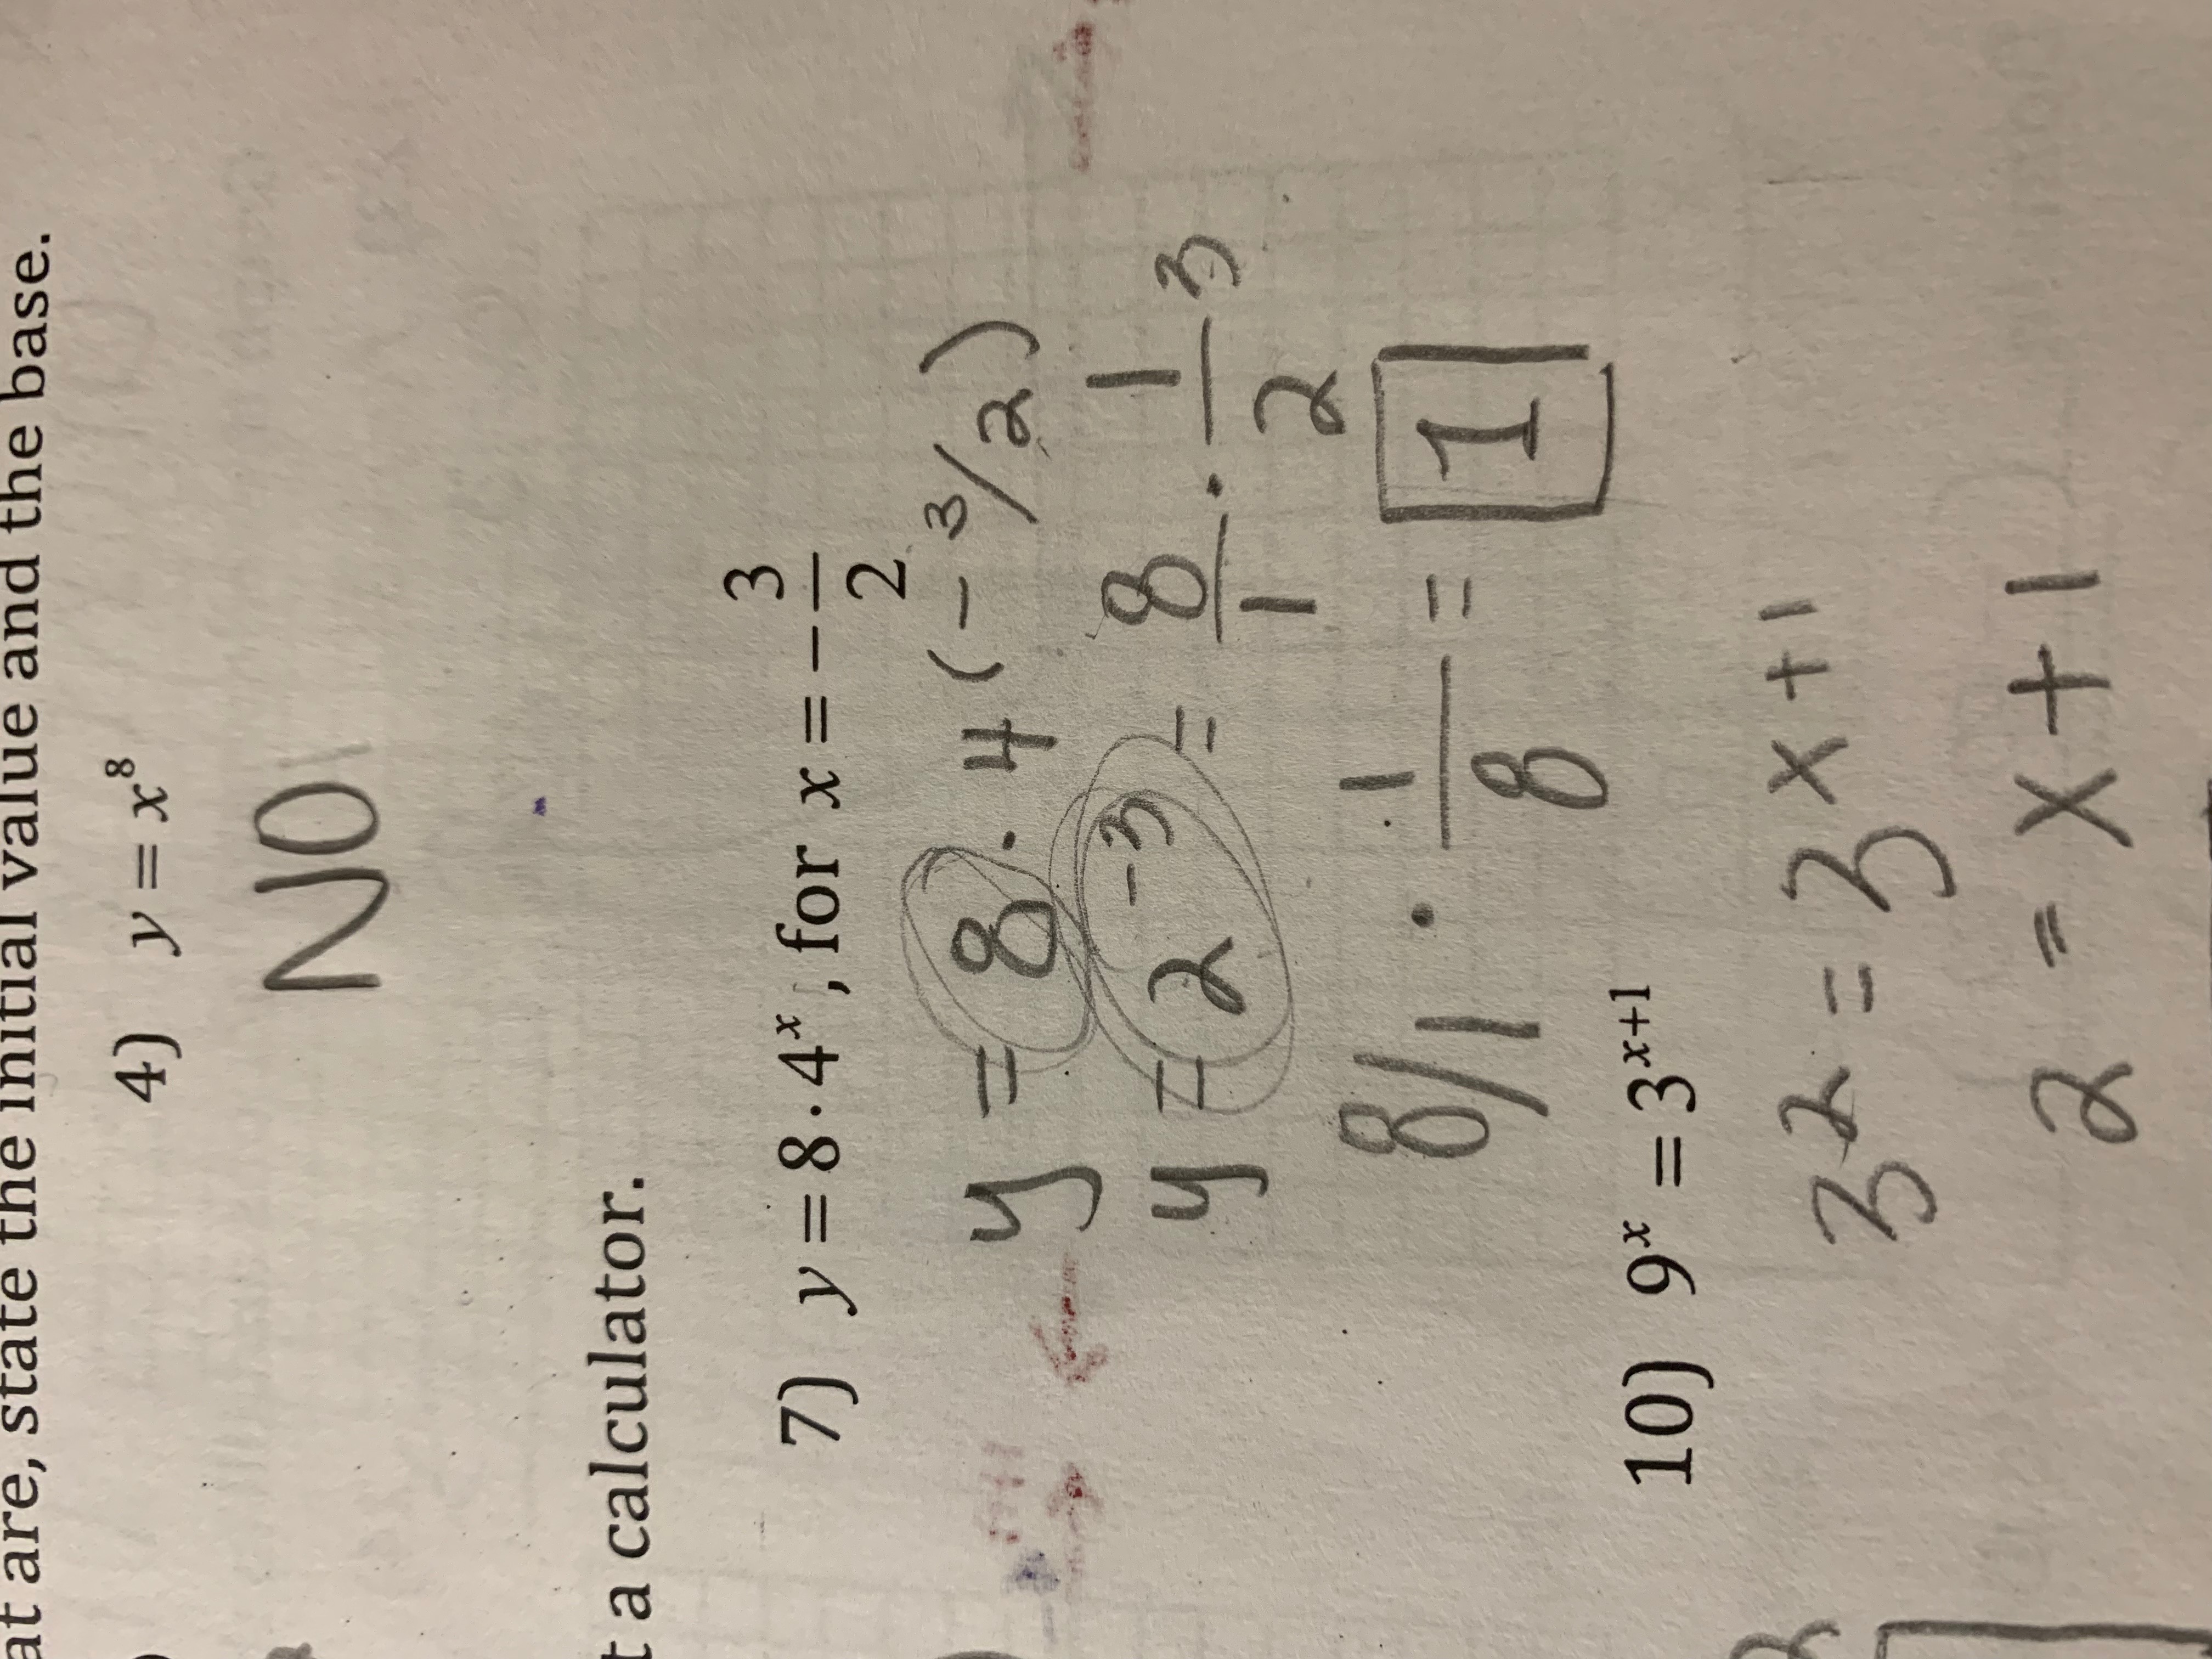 at are, state the initial value and the base.
4) y = x⁸
NO
t a calculator.
7) y = 8 · 4ˣ, for x = -3/2
y = 8 · 4 (-3/2)
y = 2⁻³ = 8/1 · 1/2 ³
8/1 · 1/8 = 1
10) 9ˣ = 3ˣ⁺¹
3² = 3ˣ⁺¹
2 = x + 1